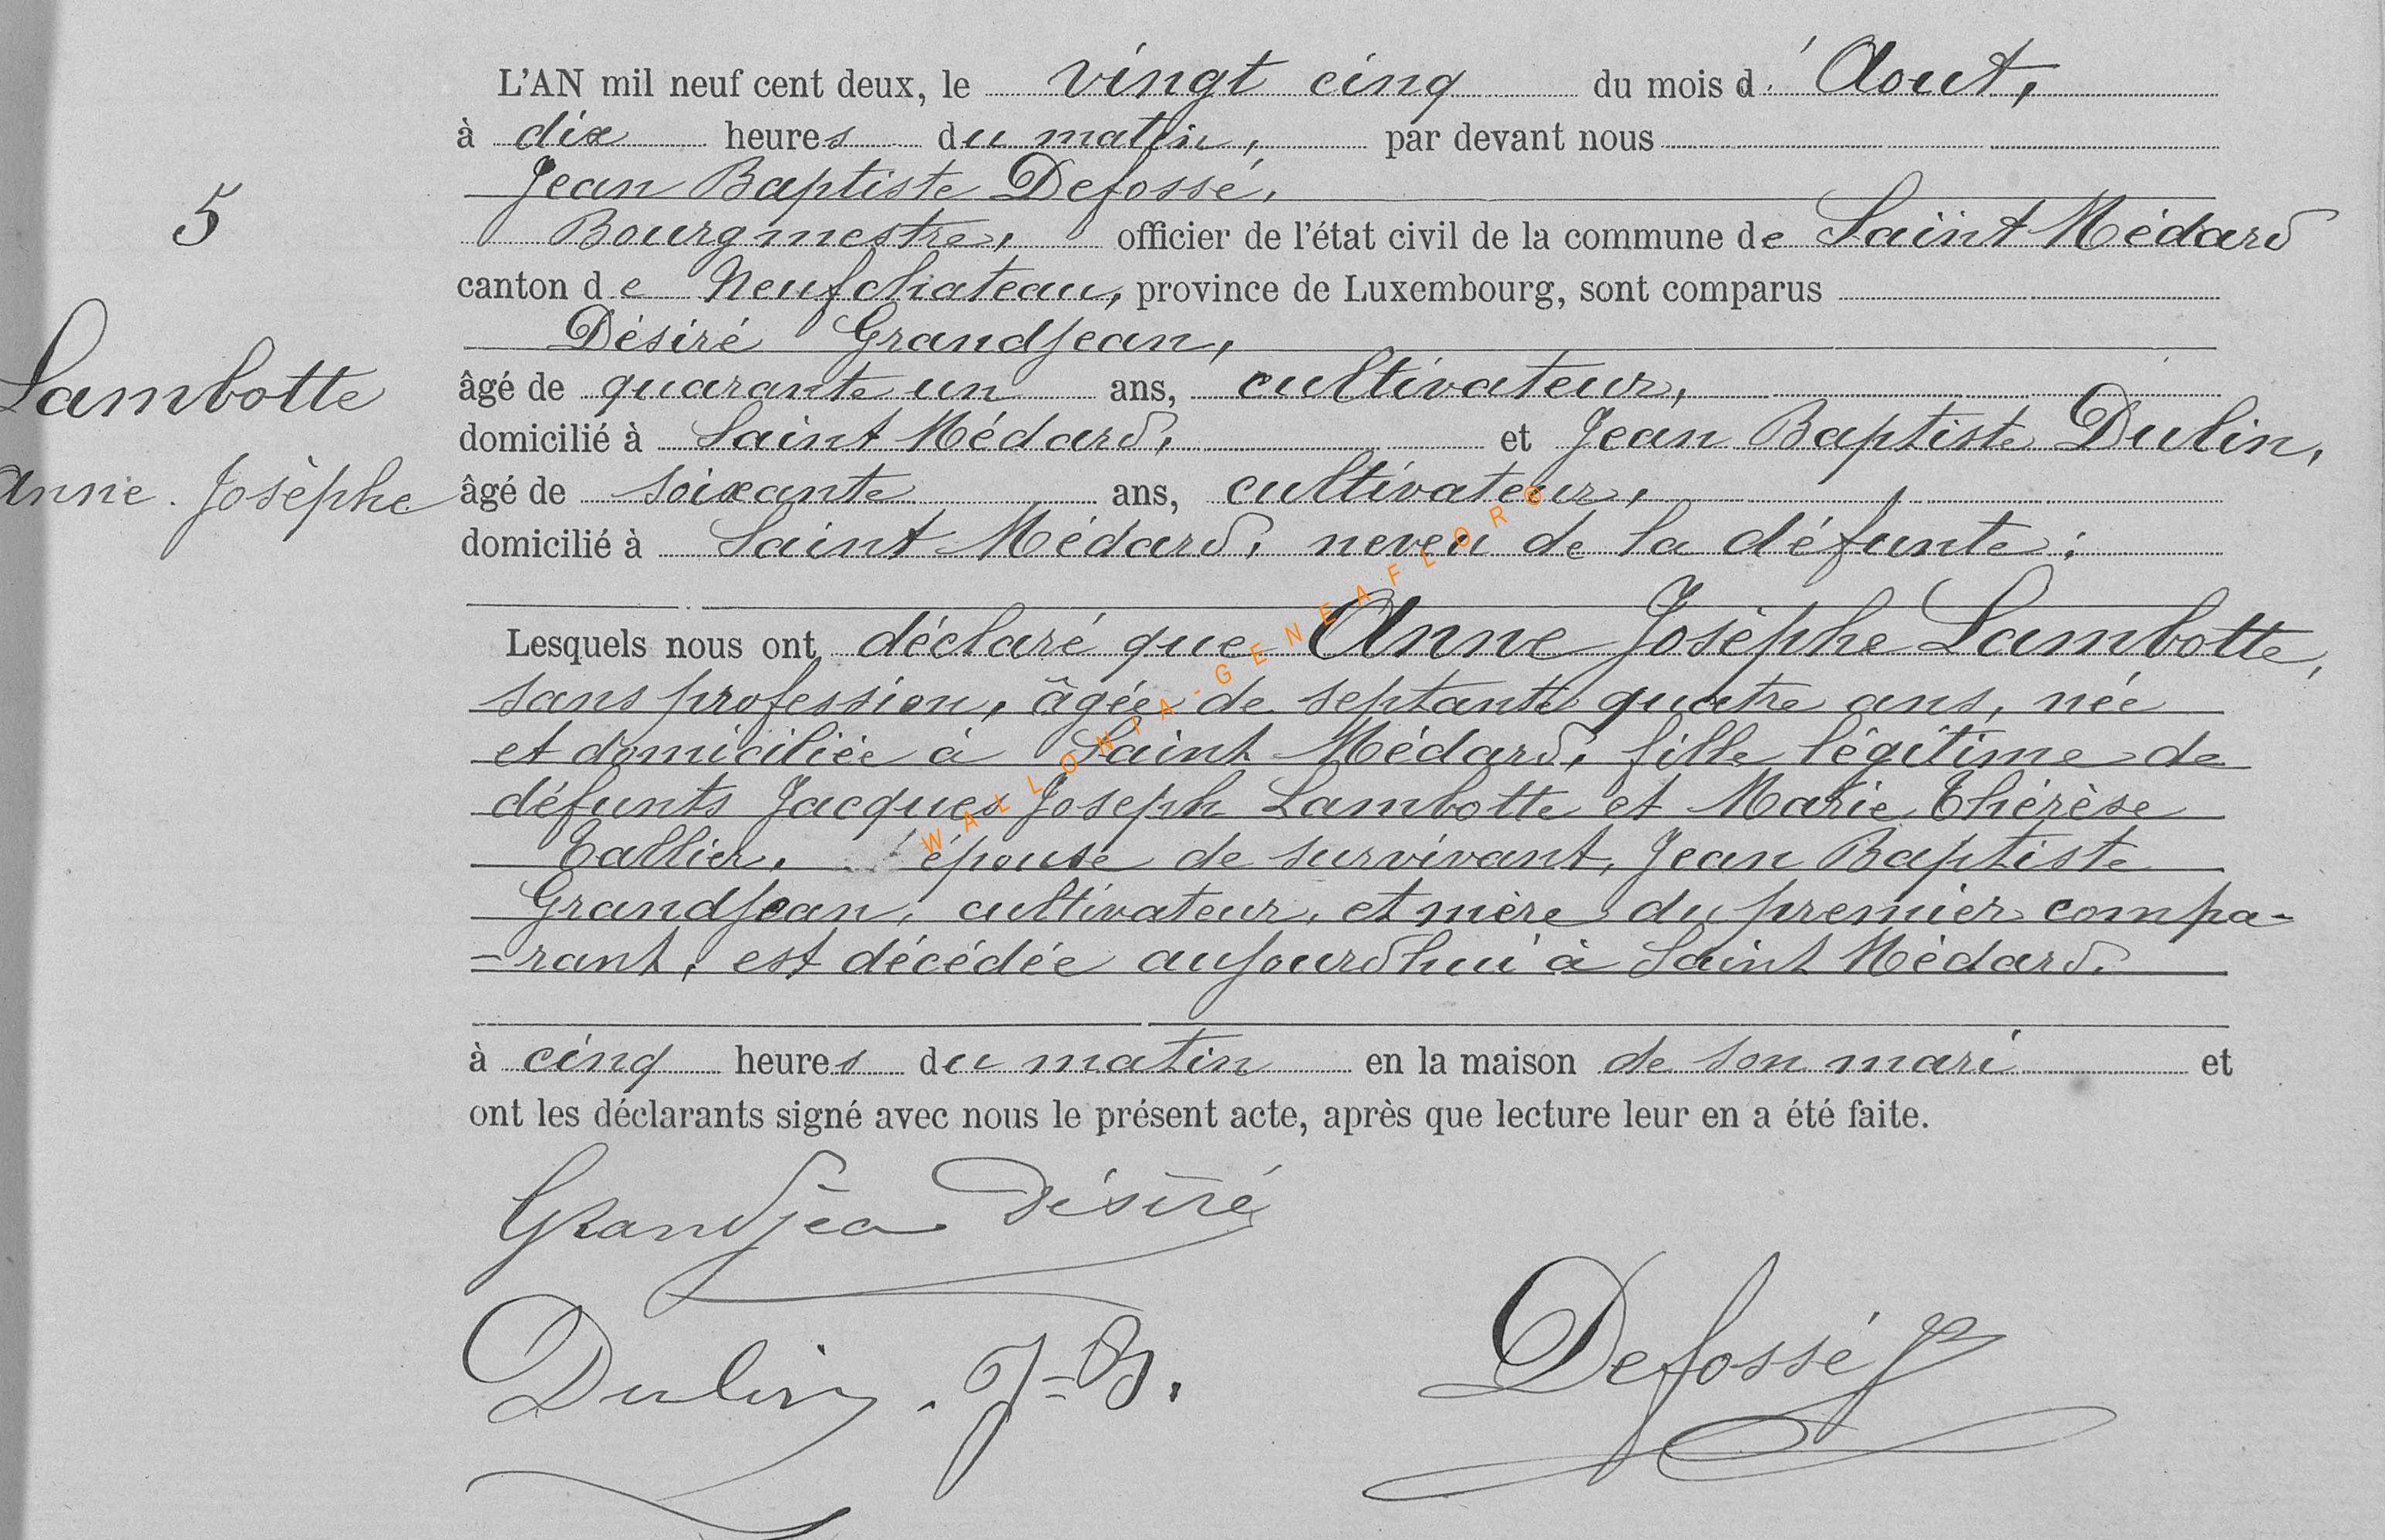 L'AN mil neuf cent deux, le vingt cinq du mois d'Aout,
à dix heures du matin, par devant nous
Jean Baptiste Defossé,
5
Bourgmestre, officier de l'état civil de la commune de Saint Médard
canton de Neufchateau, province de Luxembourg, sont comparus
Désiré Grandjean,
Lambotte
âgé de quarante un ans, cultivateur,
domicilié à Saint Médard, et Jean Baptiste Dulin,
Anne. Josèphe
âgé de soixante ans, cultivateur,
domicilié à Saint Médard, neveu de la défunte;
Lesquels nous ont déclaré que Anne Josèphe Lambotte,
sans profession, âgée de septante quatre ans, née
et domiciliée à Saint Médard, fille légitime de
défunts Jacques Joseph Lambotte et Marie Thérèse
Tallier, épouse de survivant, Jean Baptiste
Grandjean, cultivateur, et mère du premier compa-
-rant, est décédée aujourdhui à Saint Médard.
à cinq heures du matin en la maison de son mari et
ont les déclarants signé avec nous le présent acte, après que lecture leur en a été faite.
Grandjea Désiré
Dulin. J-B.
Defossé
WALLONIA-GENEAFLOR©